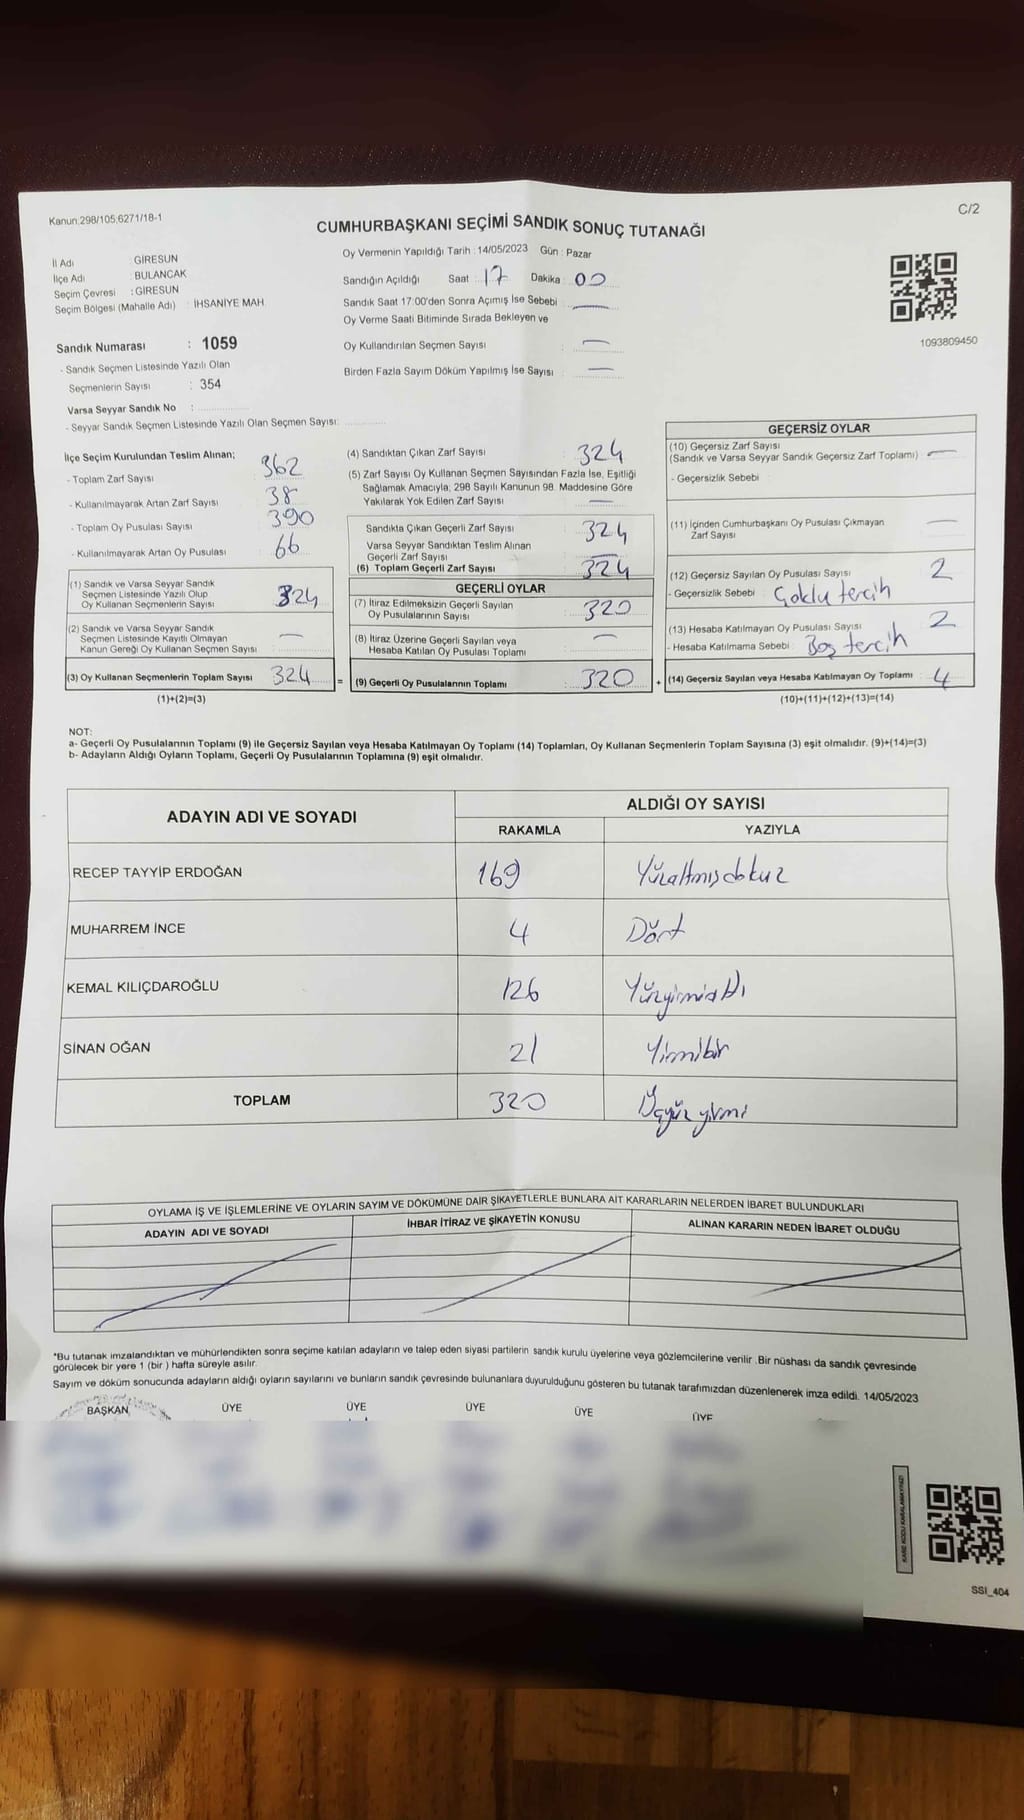 Kanun:298/105;6271/18-1
C/2
CUMHURBAŞKANI SEÇİMİ SANDIK SONUÇ TUTANAĞI
İl Adı : GİRESUN
İlçe Adı : BULANCAK
Seçim Çevresi : GİRESUN
Seçim Bölgesi (Mahalle Adı) : İHSANİYE MAH
Sandık Numarası : 1059
- Sandık Seçmen Listesinde Yazılı Olan
Seçmenlerin Sayısı : 354
Varsa Seyyar Sandık No :
- Seyyar Sandık Seçmen Listesinde Yazılı Olan Seçmen Sayısı:
Oy Vermenin Yapıldığı Tarih : 14/05/2023 Gün : Pazar
Sandığın Açıldığı Saat : 17 Dakika : 00
Sandık Saat 17:00'den Sonra Açımış İse Sebebi : —
Oy Verme Saati Bitiminde Sırada Bekleyen ve
Oy Kullandırılan Seçmen Sayısı : —
Birden Fazla Sayım Döküm Yapılmış İse Sayısı : —
1093809450
İlçe Seçim Kurulundan Teslim Alınan;
- Toplam Zarf Sayısı : 362
- Kullanılmayarak Artan Zarf Sayısı : 38
- Toplam Oy Pusulası Sayısı : 390
- Kullanılmayarak Artan Oy Pusulası : 66
(1) Sandık ve Varsa Seyyar Sandık
Seçmen Listesinde Yazılı Olup
Oy Kullanan Seçmenlerin Sayısı : 324
(2) Sandık ve Varsa Seyyar Sandık
Seçmen Listesinde Kayıtlı Olmayan
Kanun Gereği Oy Kullanan Seçmen Sayısı : —
(3) Oy Kullanan Seçmenlerin Toplam Sayısı : 324
(1)+(2)=(3)
(4) Sandıktan Çıkan Zarf Sayısı : 324
(5) Zarf Sayısı Oy Kullanan Seçmen Sayısından Fazla İse, Eşitliği
Sağlamak Amacıyla; 298 Sayılı Kanunun 98. Maddesine Göre
Yakılarak Yok Edilen Zarf Sayısı : —
Sandıkta Çıkan Geçerli Zarf Sayısı : 324
Varsa Seyyar Sandıktan Teslim Alınan
Geçerli Zarf Sayısı : —
(6) Toplam Geçerli Zarf Sayısı : 324
GEÇERLİ OYLAR
(7) İtiraz Edilmeksizin Geçerli Sayılan
Oy Pusulalarının Sayısı : 320
(8) İtiraz Üzerine Geçerli Sayılan veya
Hesaba Katılan Oy Pusulası Toplamı : —
= (9) Geçerli Oy Pusulalarının Toplamı : 320
GEÇERSİZ OYLAR
(10) Geçersiz Zarf Sayısı
(Sandık ve Varsa Seyyar Sandık Geçersiz Zarf Toplamı) : —
- Geçersizlik Sebebi :
(11) İçinden Cumhurbaşkanı Oy Pusulası Çıkmayan
Zarf Sayısı : —
(12) Geçersiz Sayılan Oy Pusulası Sayısı : 2
- Geçersizlik Sebebi : Çoklu tercih
(13) Hesaba Katılmayan Oy Pusulası Sayısı : 2
- Hesaba Katılmama Sebebi : Boş tercih
+ (14) Geçersiz Sayılan veya Hesaba Katılmayan Oy Toplamı : 4
(10)+(11)+(12)+(13)=(14)
NOT:
a- Geçerli Oy Pusulalarının Toplamı (9) ile Geçersiz Sayılan veya Hesaba Katılmayan Oy Toplamı (14) Toplamları, Oy Kullanan Seçmenlerin Toplam Sayısına (3) eşit olmalıdır. (9)+(14)=(3)
b- Adayların Aldığı Oyların Toplamı, Geçerli Oy Pusulalarının Toplamına (9) eşit olmalıdır.
ADAYIN ADI VE SOYADI
ALDIĞI OY SAYISI
RAKAMLA YAZIYLA
RECEP TAYYİP ERDOĞAN 169 Yüzaltmışdokuz
MUHARREM İNCE 4 Dört
KEMAL KILIÇDAROĞLU 126 Yüzyirmialtı
SİNAN OĞAN 21 Yirmibir
TOPLAM 320 Üçyüzyirmi
OYLAMA İŞ VE İŞLEMLERİNE VE OYLARIN SAYIM VE DÖKÜMÜNE DAİR ŞİKAYETLERLE BUNLARA AİT KARARLARIN NELERDEN İBARET BULUNDUKLARI
ADAYIN ADI VE SOYADI İHBAR İTİRAZ VE ŞİKAYETİN KONUSU ALINAN KARARIN NEDEN İBARET OLDUĞU
*Bu tutanak imzalandıktan ve mühürlendikten sonra seçime katılan adayların ve talep eden siyasi partilerin sandık kurulu üyelerine veya gözlemcilerine verilir .Bir nüshası da sandık çevresinde
görülecek bir yere 1 (bir ) hafta süreyle asılır.
Sayım ve döküm sonucunda adayların aldığı oyların sayılarını ve bunların sandık çevresinde bulunanlara duyurulduğunu gösteren bu tutanak tarafımızdan düzenlenerek imza edildi. 14/05/2023
BAŞKAN ÜYE ÜYE ÜYE ÜYE ÜYE
KARE KODU KARALAMAYINIZ!
SSİ_404